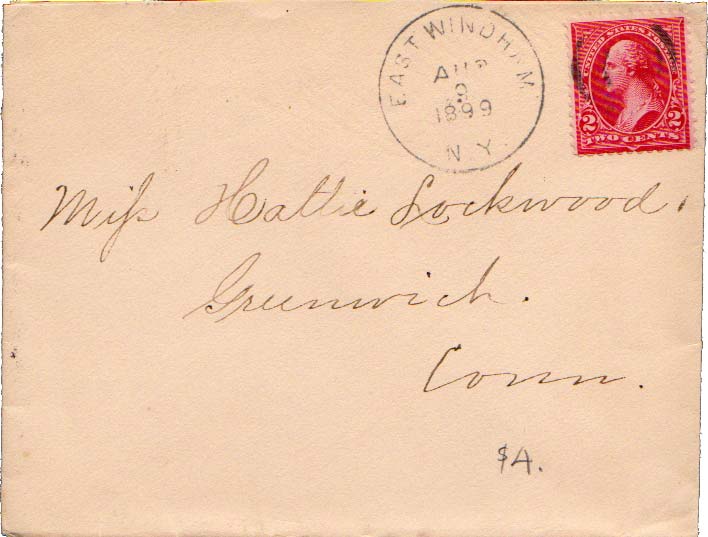 EAST WINDHAM
AUG
9
1899
N.Y.
UNITED STATES POSTAGE
2 2
TWO CENTS
Miss Hattie Lockwood,
Greenwich.
Conn.
$4.